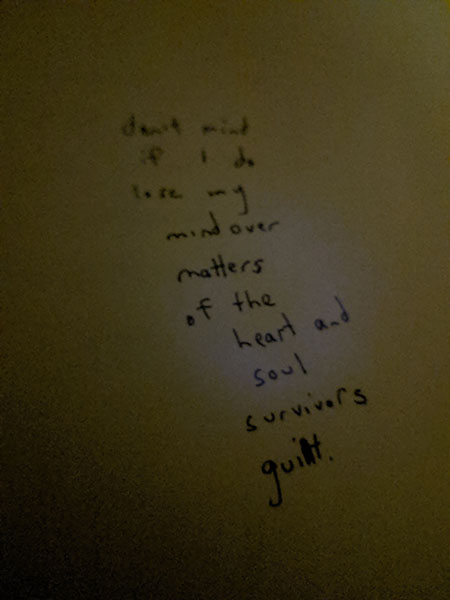 don't mind
if I do
lose my
mind over
matters
of the
heart and
soul
survivors
guilt.